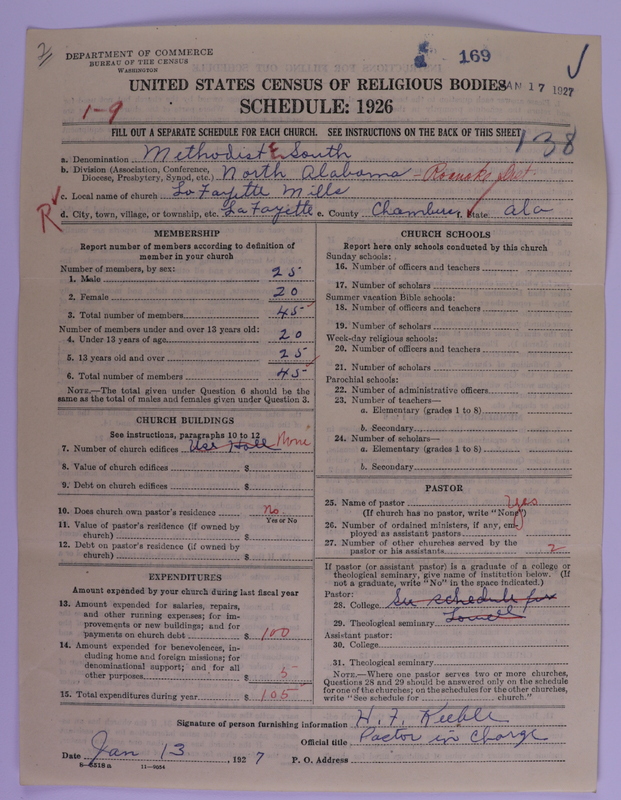 DEPARTMENT OF COMMERCE
BUREAU OF THE CENSUS
WASHINGTON
169
UNITED STATES CENSUS OF RELIGIOUS BODIES
JAN 17 1927
SCHEDULE: 1926
1-9
FILL OUT A SEPARATE SCHEDULE FOR EACH CHURCH. SEE INSTRUCTIONS ON THE BACK OF THIS SHEET
138
a. Denomination Methodist E. South
b. Division (Association, Conference, Diocese, Presbytery, Synod, etc.) North Alabama - Roanoke Dist.
c. Local name of church LaFayette Mills
R
d. City, town, village, or township, etc. LaFayette e. County Chambers f. State Ala
MEMBERSHIP
Report number of members according to definition of
member in your church
Number of members, by sex:
1. Male 25
2. Female 20
3. Total number of members 45
Number of members under and over 13 years old:
4. Under 13 years of age 20
5. 13 years old and over 25
6. Total number of members 45
NOTE.—The total given under Question 6 should be the
same as the total of males and females given under Question 3.
CHURCH BUILDINGS
See instructions, paragraphs 10 to 12
7. Number of church edifices Use Hall None
8. Value of church edifices $
9. Debt on church edifices $
10. Does church own pastor's residence No.
Yes or No
11. Value of pastor's residence (if owned by
church) $
12. Debt on pastor's residence (if owned by
church) $
EXPENDITURES
Amount expended by your church during last fiscal year
13. Amount expended for salaries, repairs,
and other running expenses; for im-
provements or new buildings; and for
payments on church debt $ 100
14. Amount expended for benevolences, in-
cluding home and foreign missions; for
denominational support; and for all
other purposes $ 5
15. Total expenditures during year $ 105
CHURCH SCHOOLS
Report here only schools conducted by this church
Sunday schools:
16. Number of officers and teachers
17. Number of scholars
Summer vacation Bible schools:
18. Number of officers and teachers
19. Number of scholars
Week-day religious schools:
20. Number of officers and teachers
21. Number of scholars
Parochial schools:
22. Number of administrative officers
23. Number of teachers—
a. Elementary (grades 1 to 8)
b. Secondary
24. Number of scholars—
a. Elementary (grades 1 to 8)
b. Secondary
PASTOR
25. Name of pastor Yes
(If church has no pastor, write "None")
26. Number of ordained ministers, if any, em-
ployed as assistant pastors
27. Number of other churches served by the
pastor or his assistants 2
If pastor (or assistant pastor) is a graduate of a college or
theological seminary, give name of institution below. (If
not a graduate, write "No" in the space indicated.)
Pastor:
28. College See schedule for
29. Theological seminary Lowell
Assistant pastor:
30. College
31. Theological seminary
NOTE.—Where one pastor serves two or more churches,
Questions 28 and 29 should be answered only on the schedule
for one of the churches; on the schedules for the other churches,
write "See schedule for church."
Signature of person furnishing information H. F. Keeble
Official title Pastor in charge
Date Jan 13, 1927 P. O. Address
8-6518a 11-9054